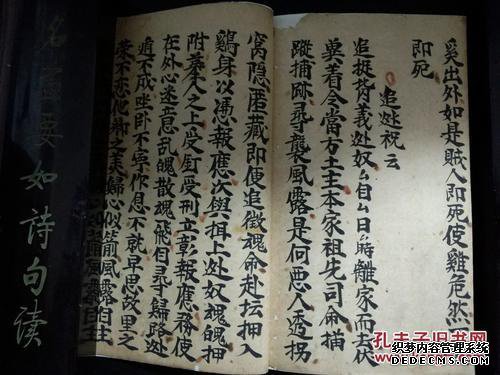 奚出外如是賊人即死使雞危然
即死
追逃祝云
追挺背義逃奴厶自厶日時離家而去伏
奠着令當方土主本家祖先司命捕
蹤捕跡尋襲風露是何惡人透拐
窩隱匿藏即便追徵魂命赴坛押入
鷄身以憑報應次與揖上逃奴魂魄押
附藁人之上受釘受刑立彰報應務使
在外心迷意乱魄散魂飛自尋歸路
道不成坐卧不寧作息不就早思故里之
不恋他鄉之美歸心似箭
名
要如詩句读
孔夫子旧书网
织梦内容管理系统